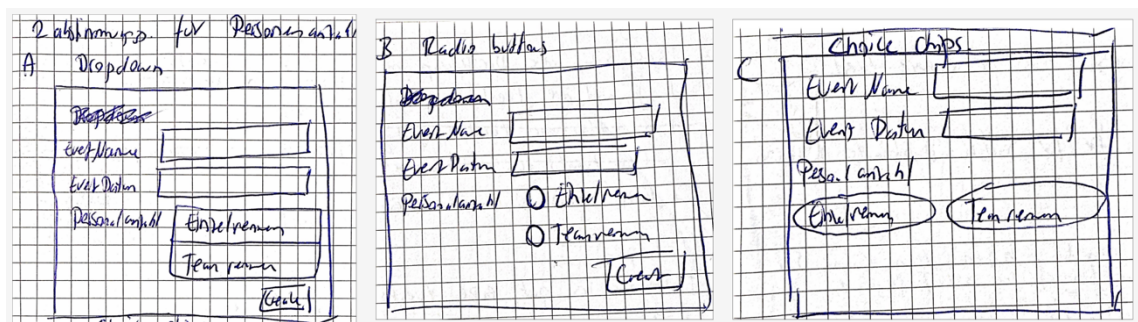 für Personenanzahl
A Dropdown
Event Name
Event Datum
Personalanzahl
Einzelrennen
Team rennen
Create
B Radio buttons
Event Name
Event Datum
Personalanzahl
Einzelrennen
Teamrennen
Create
Choice chips.
C
Event Name
Event Datum
Personalanzahl
Einzelrennen
Teamrennen